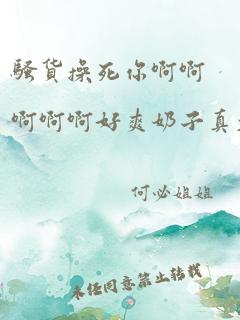 骚货操死你啊啊
啊啊啊好爽奶子真
何必姐姐
未经同意禁止转载